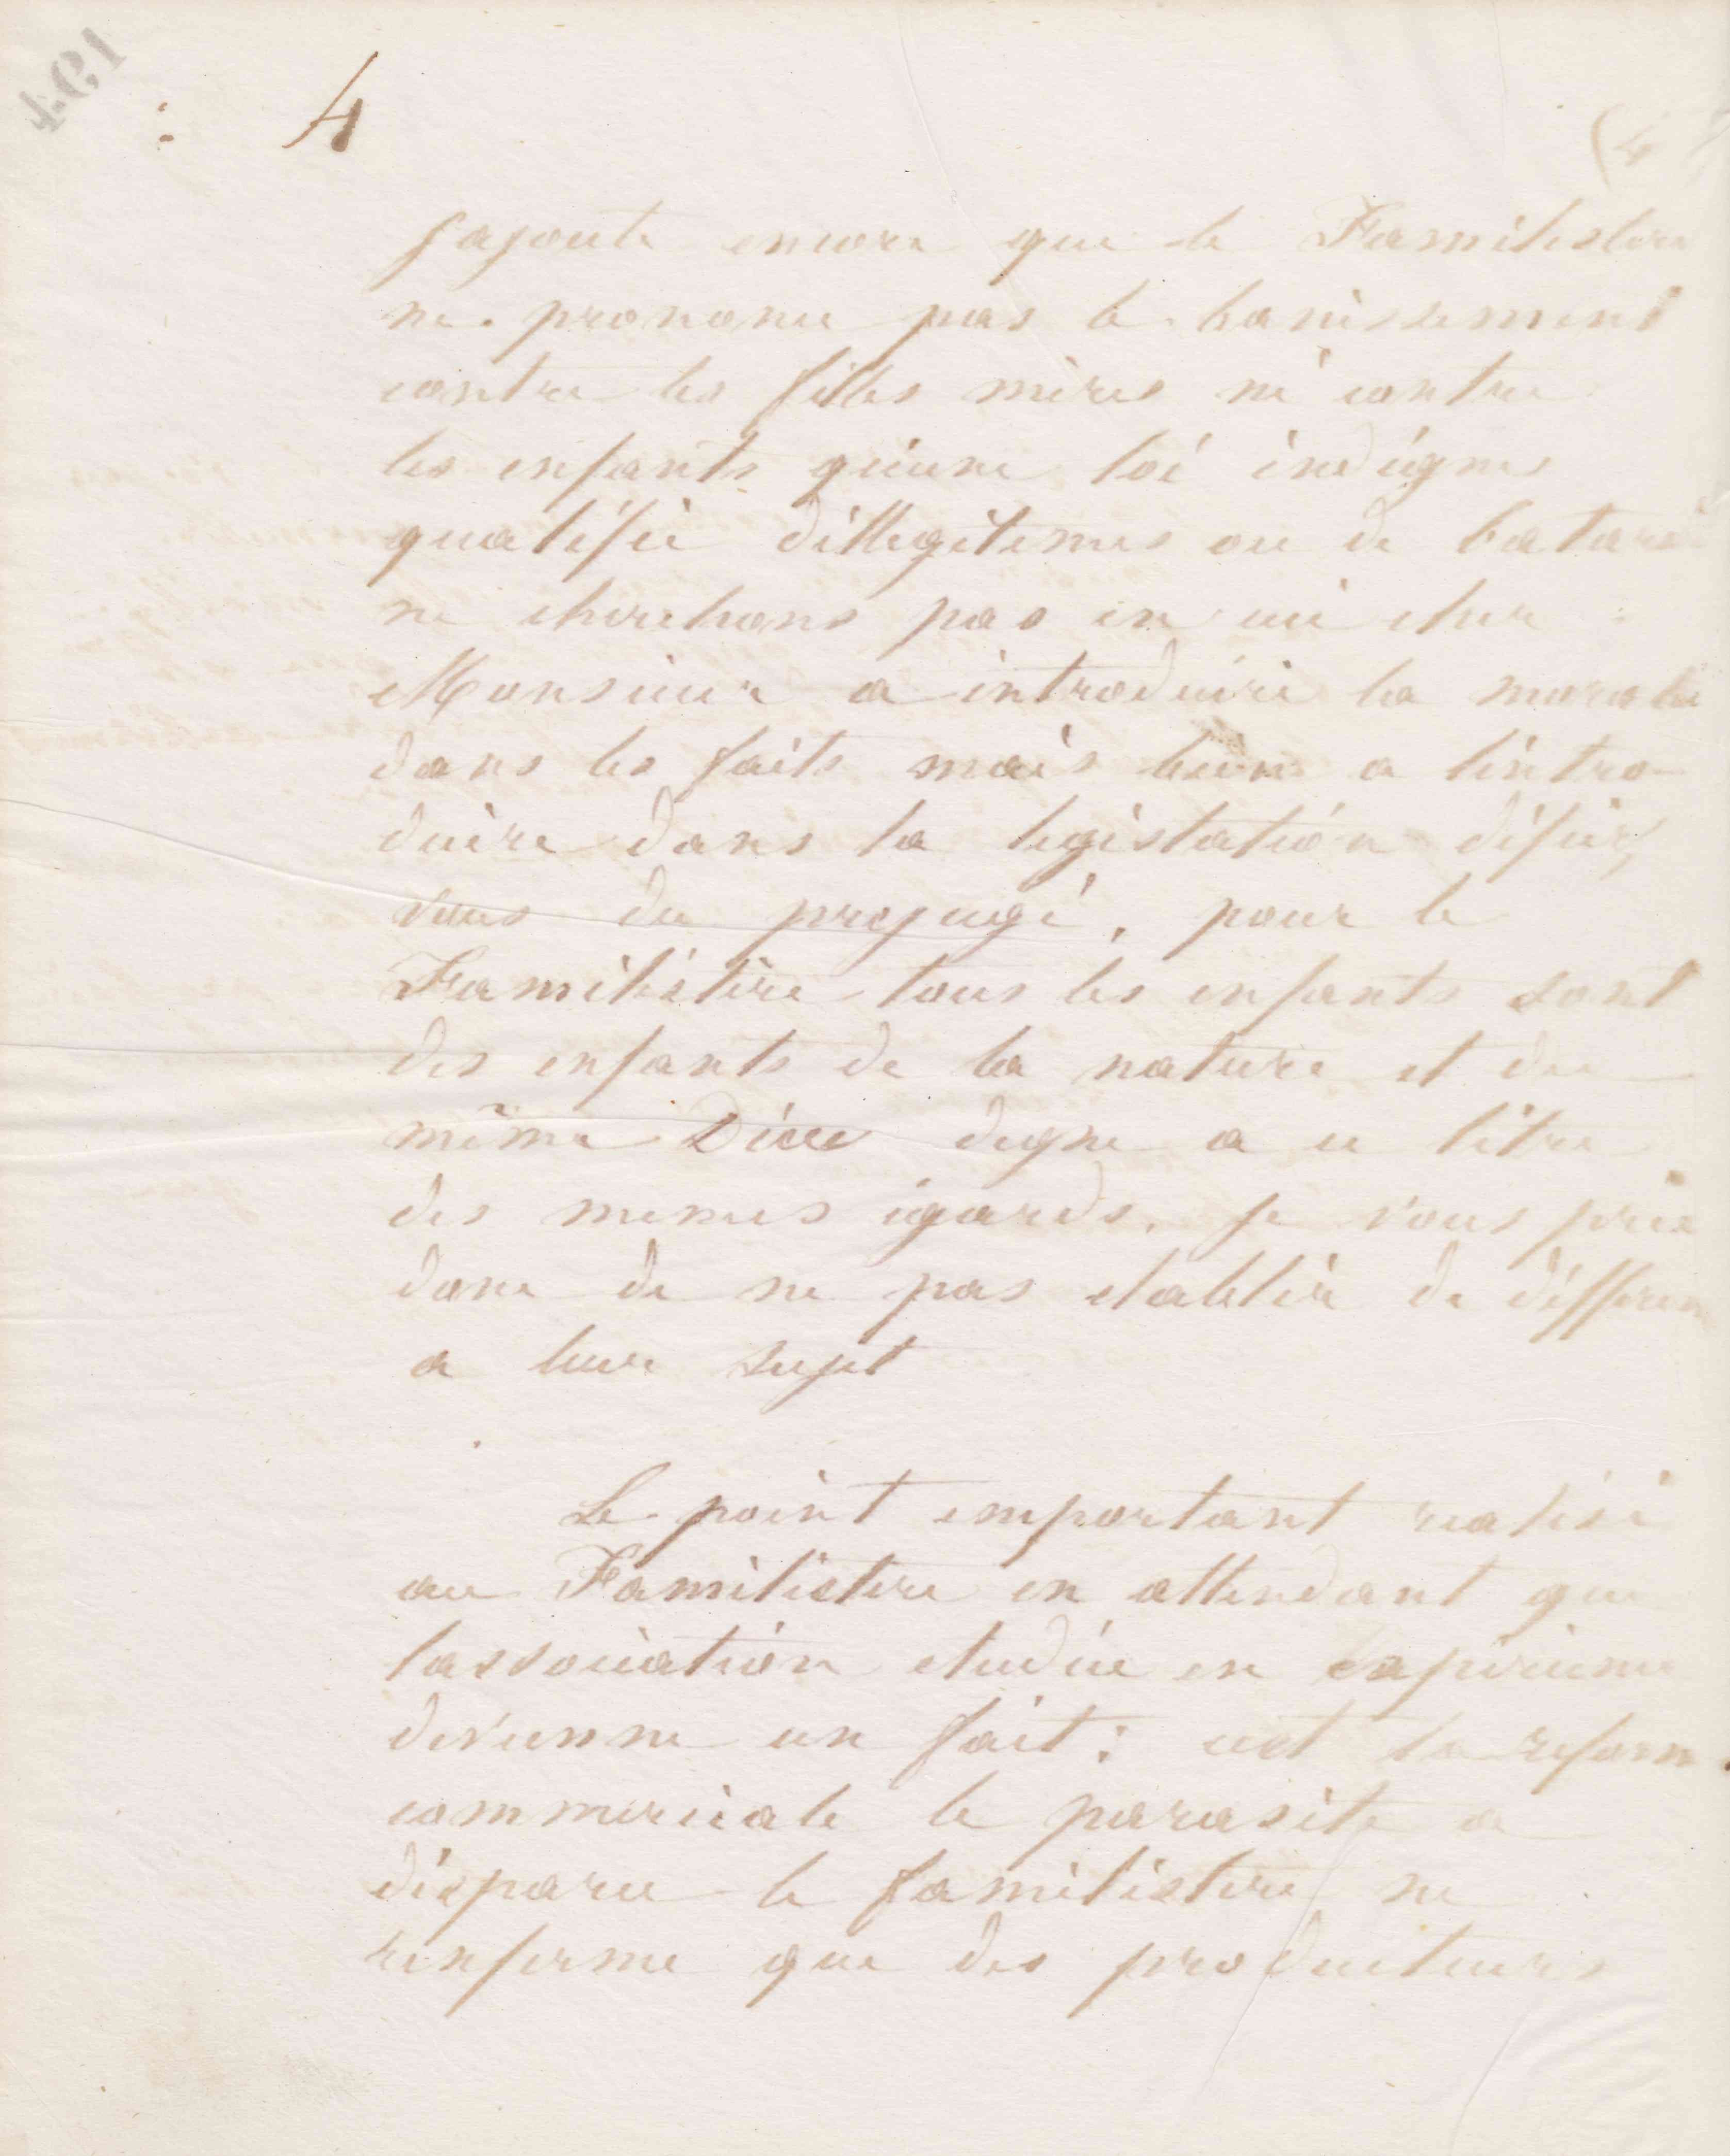 4
(4
j'ajoute encore que le Familistère
ne prononce pas le banissement
contre les filles mères ni contre
les enfants qu'une loi indigne
qualifie d'illegitimes ou de batard
ne cherchons pas en ceci cher
Monsieur a introduire la morale
dans les faits mais bien a l'intro-
duire dans la legislation défiez
vous du prejugé, pour le
Familistère tous les enfants sont
des enfants de la nature et du
même Dieu digne a ce titre
des memes égards. je vous prie
donc de ne pas etablir de differen
a leur sujet
Le point important realisé
au Familistère en attendant que
l'association etudiée en expérience
devienne un fait : c'est la reforme
commerciale le parasite a
disparu le familistère ne
renferme que des producteurs